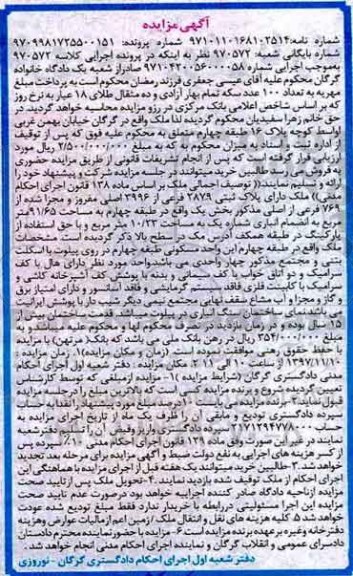 آگهی مزایده
شماره نامه: ۹۷۱۰۱۱۰۱۶۸۱۰۲۵۱۴ شماره پرونده: ۹۷۰۹۹۸۱۷۲۵۵۰۰۱۵۱
شماره بایگانی شعبه: ۹۷۰۵۷۲ نظر به اینکه در پرونده اجرایی کلاسه ۹۷۰۵۷۲
بموجب اجرایی شماره ۹۷۱۰۴۲۰۰۵۶۰۰۰۰۵۸ صادراز شعبه یک دادگاه خانواده
گرگان محکوم علیه آقای عیسی جعفری فرزند رمضان محکوم است به پرداخت مبلغ
مهریه به تعداد ۱۰۰ عدد سکه تمام بهار آزادی و ده مثقال طلای ۱۸ عیار به نرخ روز
که بر اساس شاخص اعلامی بانک مرکزی در رزو مزایده محاسبه خواهد گردید. در
حق خانم زهرا سفیدیان محکوم گردیده لذا ملک واقع در گرگان خیابان بهمن غربی
اواسط کوچه پلاک ۱۶ طبقه چهارم متعلق به محکوم علیه فوق که پس از توقیف
از اداره ثبت و اسناد به میزان محکوم به که به مبلغ ۲/۵۰۰/۰۰۰/۰۰۰ ریال مورد
ارزیابی قرار گرفته است که پس از انجام تشریفات قانونی از طریق مزایده حضوری
به فروش می رسد طالبین خرید میتوانند در جلسه مزایده شرکت و پیشنهاد خود را
ارائه و تسلیم نمایند(( توصیف اجمالی ملک بر اساس ماده ۱۳۸ قانون اجرای احکام
مدنی)) ملک دارای پلاک ثبتی ۲۸۷۹ فرعی از ۳۹۹۶ اصلی مفروز و مجزا شده از
۷۶۹ فرعی از اصلی مذکور بخش یک واقع در طبقه چهارم به مساحت ۹۱/۶۵ متر
مربع به انضمام انباری شماره یک به مساحت ۱۰/۲۳ متر مربع و با حق استفاده از
پارکینگ در طبقه همکف آدرس ملک در سطح بالا ذکر گردیده است مشخصات
ملک واقع در طبقه چهارم این واحد مسکونی طبقه چهارم در روی پیلوت با اسکلت
بتنی و مجتمع مذکور چهار واحدی می باشدواحد مورد نظر دارای هال با کف
سرامیک و دو اتاق خواب با کف سیمانی و بدنه با پوشش کف آشپزخانه کاشی و
سرامیک با کابینت فلزی فاقد سیستم گرمایشی و فاقد آسانسور و دارای امتیاز برق
و گاز و مجزا و آب مشاع سقف نهایی مجتمع نیمی دیگر شیب دار با پوشش ایرانیت
می باشد نمای ساختمان سنگ انباری در پیلوت میباشد قدمت ساختمان بیش از
۱۵ سال بوده و در زمان بازدید در تصرف محکوم لها و محکوم علیه میباشد و به
مبلغ ۳۵۴/۰۰۰/۰۰۰ ریال در رهن بانک ملی می باشد که بانک( مرتهن) با مزایده
با حفظ حقوق رهنی موافقت نموده است. (زمان و مکان مزایده)۱. زمان مزایده :
۱۳۹۷/۱۱/۱۰ از ساعت ۱۰ الی ۱۱ ۲. مکان مزایده : دفتر شعبه اول اجرای احکام
مدنی دادگستری گرگان (شرایط مزایده )۱- مزایده ازمبلغی که توسط کارشناس
تعیین گردیده شروع و برنده مزایده کسی است که بالاترین مبلغ را درجلسه مزایده
قبول نماید. ۲- برنده مزایده می بایست ۱۰ درصد مبلغ مورد پیشنهاد را نقدا بحساب
سپرده دادگستری تودیع و مابقی آن را ظرف یک ماه از تاریخ اجرای مزایده به
حساب ۲۱۷۱۲۹۴۷۷۸۰۰۰ سپرده دادگستری واریزوفیش آن را تسلیم دفترشعبه
نمایند در غیر این صورت وفق ماده ۱۲۹ قانون اجرای احکام مدنی ۱۰٪ سپرده پس
از کسر هزینه های اجرایی به نفع دولت ضبط و آگهی مزایده برای مرحله بعد تجدید
خواهد شد.۳-طالبین خرید میتوانند یک هفته قبل از اجرای مزایده با هماهنگی این
اجرای احکام از ملک توقیف شده بازدید نمایند. ۴-تحویل ملک پس ازتایید صحت
مزایده ازناحیه دادگاه صادر کننده اجراییه خواهد بود درصورت عدم تایید صحت
مزایده این اجرا مسئولیتی دررابطه با خریدار ندارد فقط مبلغ تودیع شده عودت
خواهد شد ۵- کلیه هزینه های نقل و انتقال ملک /زمین اعم ازمالیات عوارض وهزینه
دفترخانه وغیره بر عهده برنده مزایده است ۶. مزایده با حضورنماینده محترم دادستان
دادسرای عمومی و انقلاب گرگان و نماینده اجرای احکام مدنی انجام خواهد شد.
دفتر شعبه اول اجرای احکام دادگستری گرگان - نوروزی